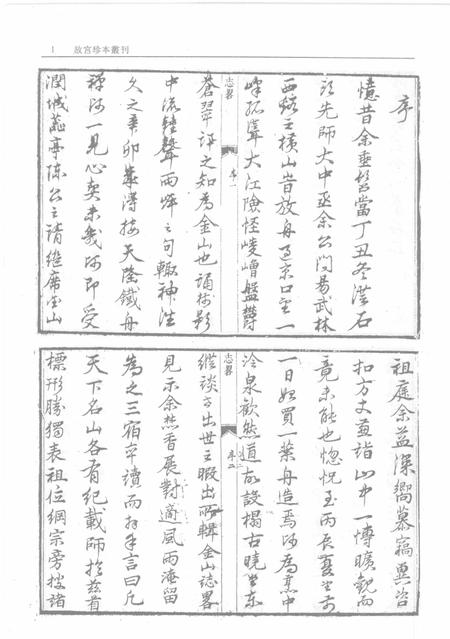 1 故宮珍本叢刊
序
憶昔余垂髫當丁丑冬從石
頭先師大中丞余公問易武林
西之橫山嘗放舟過京口望一
峰孤聳大江險怪崚嶒盤鬱
蒼翠詳之知為金山也誦樹影
志畧 序一
中流鐘聲兩岸之句輒神注
久之辛卯幸得接天隆鐵舟
禪師一見心契未幾師即受
潤城蕊亭陳公之請継席金山
祖庭余益深嚮慕竊冀洽
扣方丈兼詣山中一博曠観而
竟未能也惚怳至丙辰夏至前
一日始買一葉舟造焉師為烹中
泠泉歡然道故設榻古曉堂東
志畧 序二
縱談出世之暇出所輯金山誌畧
見示余焚香展對適風雨淹留
為之三宿卒讀而拜手言曰凡
天下名山各有紀載師於茲首
標形勝獨表祖位綱宗旁搜諸